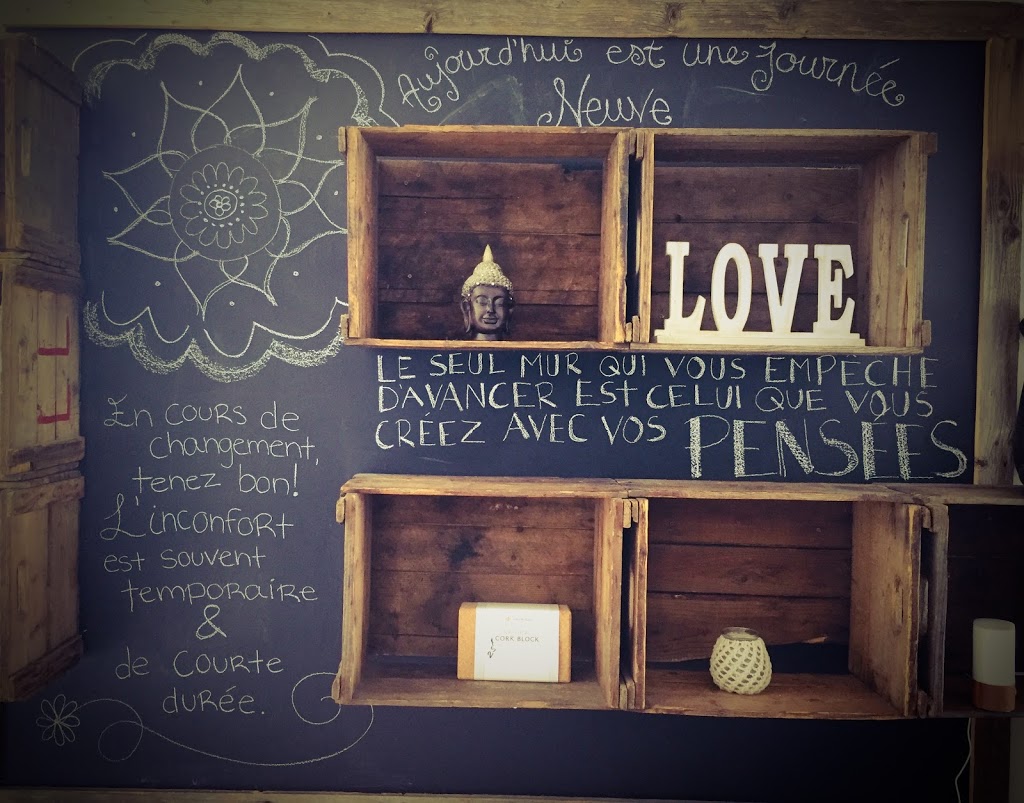 Aujourd'hui est une Journée
Neuve
LOVE
LE SEUL MUR QUI VOUS EMPÊCHE
D'AVANCER EST CELUI QUE VOUS
CRÉEZ AVEC VOS PENSÉES
En cours de
changement,
tenez bon!
L'inconfort
est souvent
temporaire
&
de courte
durée.
CORK BLOCK